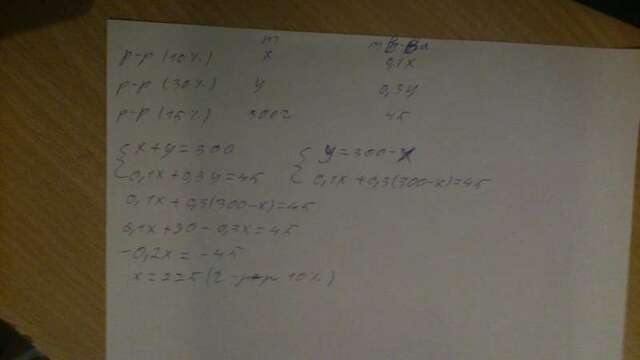 m m в-ва
р-р (10%) x 0,1x
р-р (30%) y 0,3y
р-р (15%) 300г 45
{ x+y=300 { y=300-x
0,1x+0,3y=45 0,1x+0,3(300-x)=45
0,1x+0,3(300-x)=45
0,1x+90-0,3x=45
-0,2x=-45
x=225(г -р-р 10%)